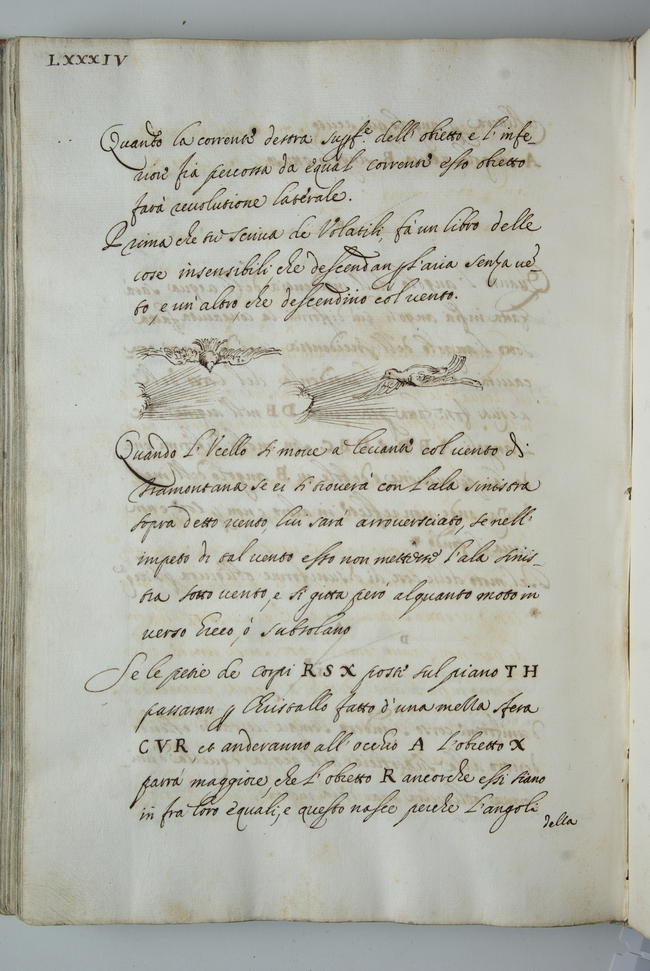 LXXXIV
Quando la corrente destra supf.e dell' obietto e l' infe-
riore sia percossa da equal corrente esso obietto
farà revolutione laterale.
Prima che tu scriva de Volatili, fà un libro delle
cose insensibili, che descendan p l'aria senza vẽ-
to, e un' altro che descendino col vento.
Quando l' Vcello si move a levante col vento di
tramontana se ei si troverà con l'ala sinistra
sopra detto vento, lui sarà arroversciato, se nell'
impeto di tal vento esso non mettesse l'ala sinis-
tra sotto vento, e si gitta però alquanto moto in
verso Greco, ò subsolano
Se le petie de corpi R S X poste sul piano T H
passaran p Christallo fatto d'una mezza sfera
C V R et anderanno all' occhio A l'obietto X
parrà maggiore, che l' obietto R ancorche essi siano
in fra loro equali, e questo nasce perche l'angoli
della